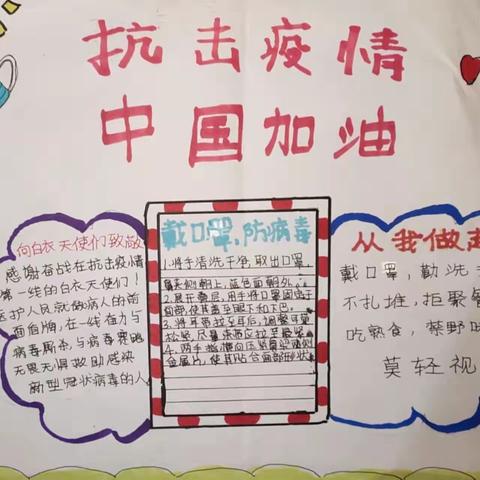 抗击疫情
中国加油
向白衣天使们致敬
感谢奋战在抗击疫情
第一线的白衣天使们!
医护人员就做病人的前
面盾牌,在一线奋力与
病毒厮杀,与病毒赛跑
无畏无惧救助感染
新型冠状病毒的人
戴口罩,防病毒
1.将手清洗干净,取出口罩,
鼻夹侧朝上,蓝色面朝外。
2.展开叠层,用手将口罩固定于
面部,使其盖至眼下和下巴。
3.将耳带拉至耳后,调整耳带
4.两手指横向压紧鼻梁侧
金属片,使其贴合面部形状
从我做起
戴口罩,勤洗
不扎堆,拒聚
吃熟食,禁野
莫轻视